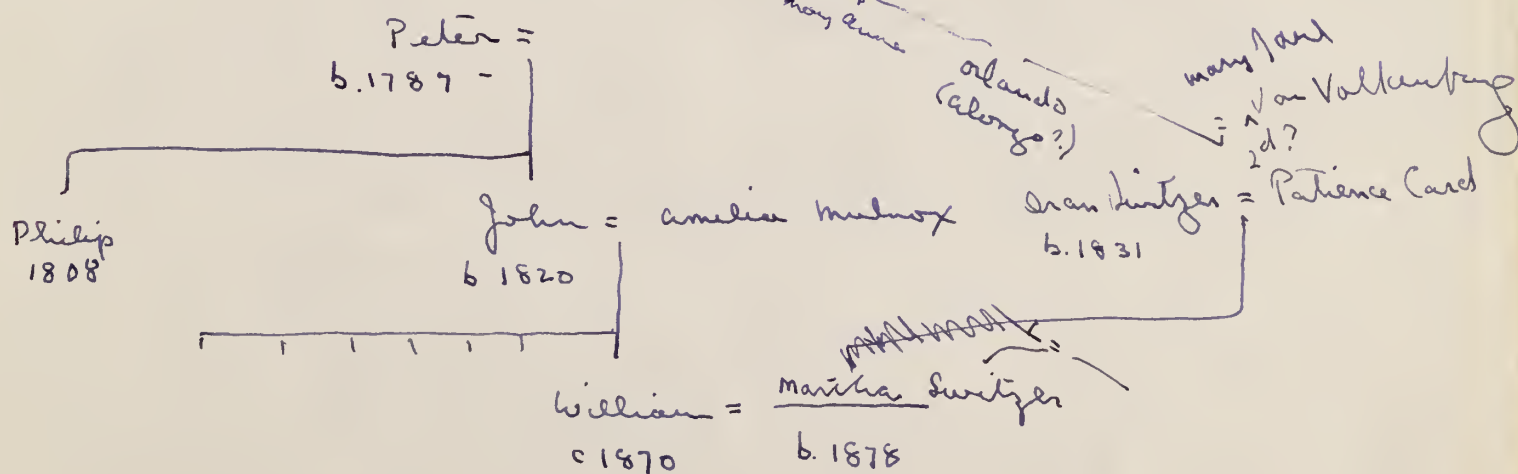 Peter =
b. 1787 -
may anne
orlando
(alonzo?)
mary Jane
= ^ Van Valkenburg
2d?
Philip
1808
John = amelia
b 1820
Switzer = Patience Card
b. 1831
=
William = Martha Switzer
c 1870
b. 1878